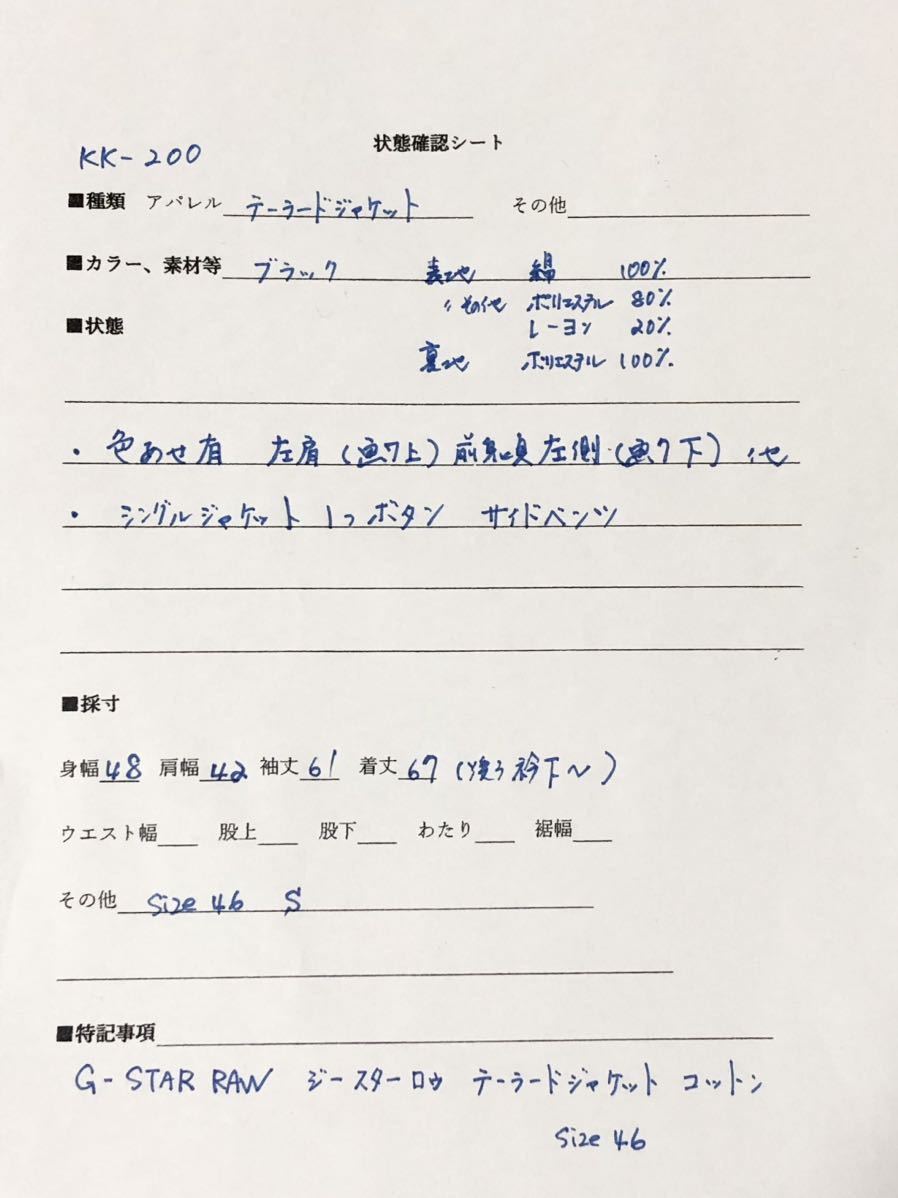 状態確認シート
KK-200
■種類 アパレル テーラードジャケット その他
■カラー、素材等 ブラック 表地 綿 100%
〃その他 ポリエステル 80%
レーヨン 20%
■状態
裏地 ポリエステル 100%
・色あせ有 左肩(画7上)前身頃左側(画7下)他
・シングルジャケット 1つボタン サイドベンツ
■採寸
身幅48 肩幅42 袖丈61 着丈67(後ろ衿下〜)
ウエスト幅 股上 股下 わたり 裾幅
その他 size 46 S
■特記事項
G-STAR RAW ジースターロウ テーラードジャケット コットン
size 46